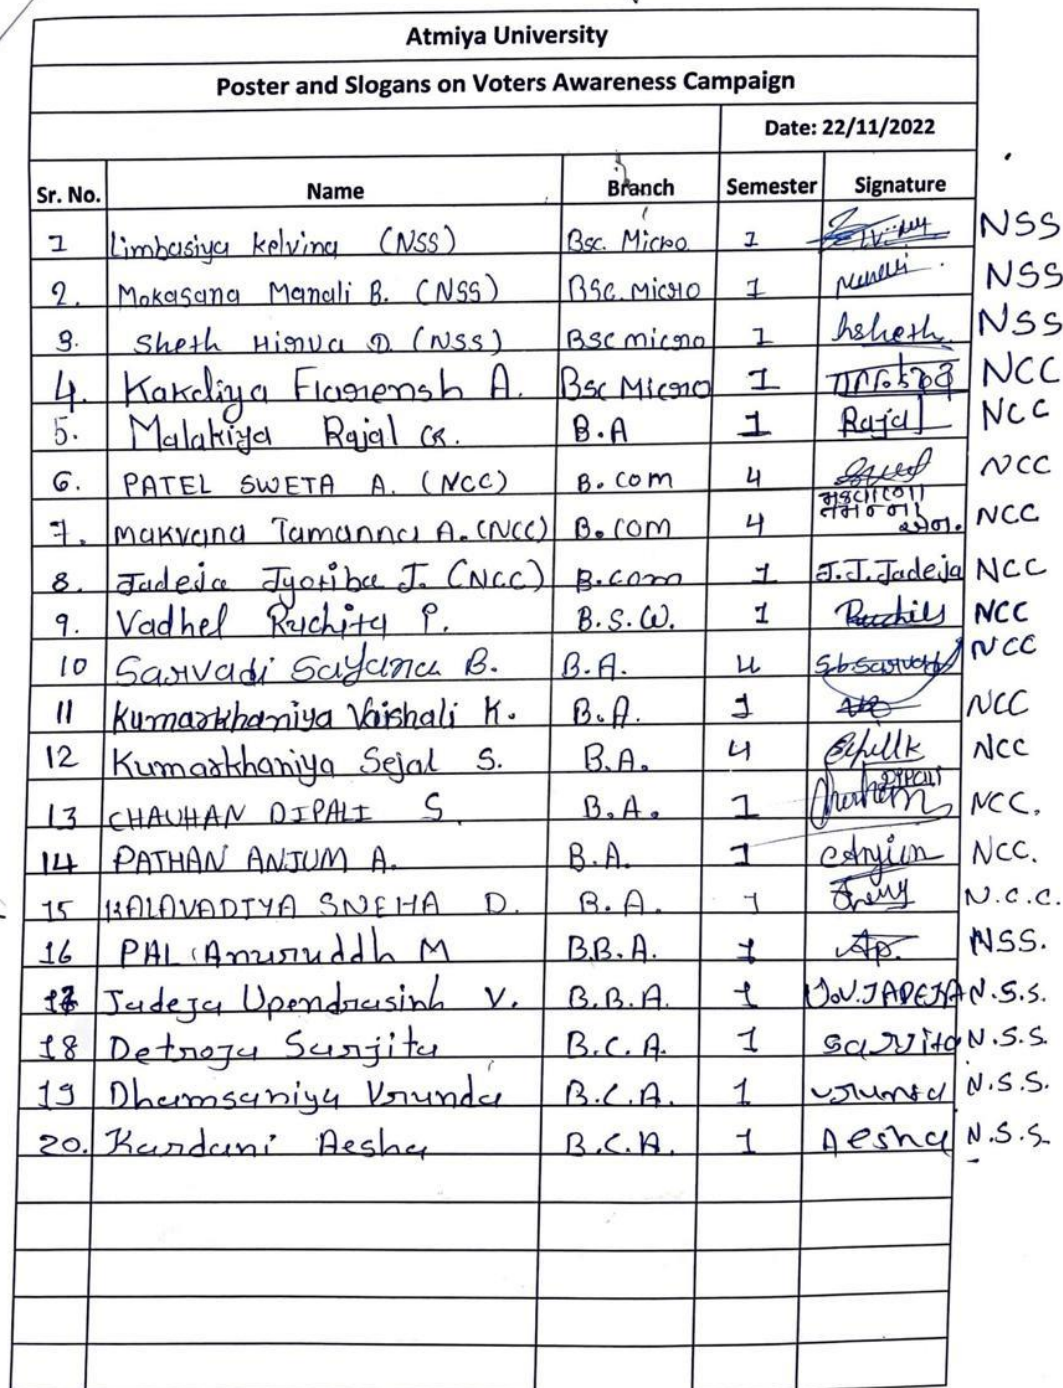 Atmiya University
Poster and Slogans on Voters Awareness Campaign
Date: 22/11/2022
Sr. No. Name Branch Semester Signature
1 Limbasiya Kelvina (NSS) Bsc. Micro 1 NSS
2. Mokasana Manali B. (NSS) BSc. Micro 1 NSS
3. Sheth Hirva D (NSS) BSc micro 1 hsheth NSS
4. Kakdiya A. Bsc Micro 1 NCC
5. Malakiya Rajal R. B.A 1 Rajal NCC
6. PATEL SWETA A. (NCC) B.com 4 NCC
7. Makvana Tamanna A. (NCC) B.com 4 NCC
8. Jadeja Jyotiba J. (NCC) B.com 1 J.J.Jadeja NCC
9. Vadhel Ruchita P. B.S.W. 1 NCC
10 Sarvadi Sayana B. B.A. 4 NCC
11 Kumarkhaniya Vaishali K. B.A. 1 NCC
12 Kumarkhaniya Sejal S. B.A. 4 NCC
13 CHAUHAN DIPALI S. B.A. 1 NCC.
14 PATHAN ANJUM A. B.A. 1 NCC.
15 KALAVADIYA SNEHA D. B.A. 1 N.C.C.
16 PAL Anuruddh M B.B.A. 1 Ap. NSS.
17 Jadeja Upendrasinh V. B.B.A. 1 U.V.JADEJA N.S.S.
18 Detroja Surjita B.C.A. 1 N.S.S.
19 Dhamsaniya Vrunda B.C.A. 1 vrunda N.S.S.
20. Kardani Aesha B.C.A. 1 Aesha N.S.S.